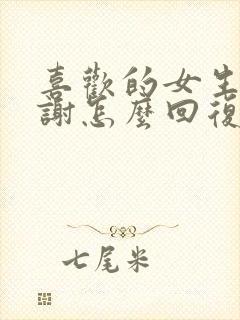 喜歡的女生
謝怎麼回復
七尾米